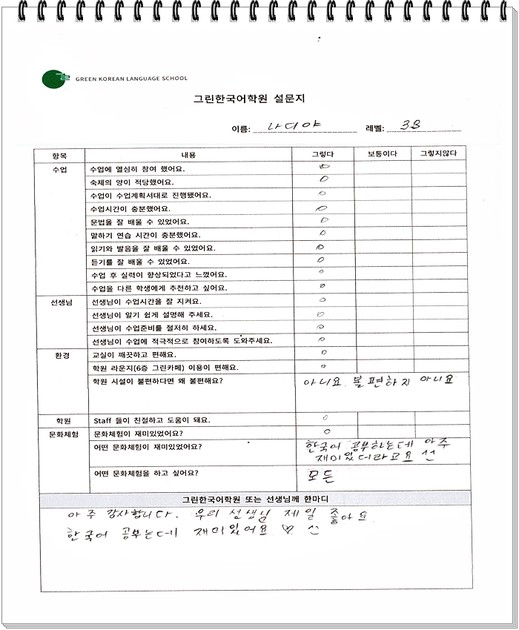 GREEN KOREAN LANGUAGE SCHOOL
그린한국어학원 설문지
이름: 나디아 레벨: 3B
항목 내용 그렇다 보통이다 그렇지않다
수업 수업에 열심히 참여 했어요. O
숙제의 양이 적당했어요. O
수업이 수업계획서대로 진행됐어요. O
수업시간이 충분했어요. O
문법을 잘 배울 수 있었어요. O
말하기 연습 시간이 충분했어요. O
읽기와 발음을 잘 배울 수 있었어요. O
듣기를 잘 배울 수 있었어요. O
수업 후 실력이 향상되었다고 느꼈어요. O
수업을 다른 학생에게 추천하고 싶어요. O
선생님 선생님이 수업시간을 잘 지켜요. O
선생님이 알기 쉽게 설명해 주세요. O
선생님이 수업준비를 철저히 하세요. O
선생님이 수업에 적극적으로 참여하도록 도와주세요. O
환경 교실이 깨끗하고 편해요. O
학원 라운지(6층 그린카페) 이용이 편해요. O
학원 시설이 불편하다면 왜 불편해요? 아니요 불편하지 아니요
학원 Staff 들이 친절하고 도움이 돼요. O
문화체험 문화체험이 재미있었어요? O
어떤 문화체험이 재미있었어요? 한국어 공부하는데 아주
재미있더라고요
어떤 문화체험을 하고 싶어요? 모든
그린한국어학원 또는 선생님께 한마디
아주 감사합니다. 우리 선생님 제일 좋아요
한국어 공부는데 재미있어요 ♡